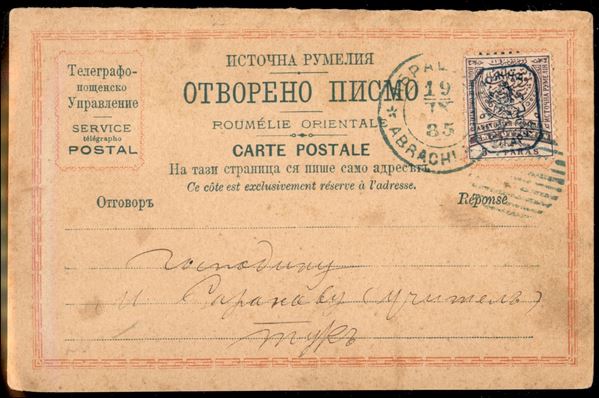 Телеграфо-
пощенско
Управление
SERVICE
télégrapho
POSTAL
ИСТОЧНА РУМЕЛИЯ
ОТВОРЕНО ПИСМО
ROUMÉLIE ORIENTALE
CARTE POSTALE
На тази страница ся пише само адресътъ.
Ce côté est exclusivement réserve à l'adresse.
Отговоръ
Réponse
19
85
PARAS
господину
тукъ